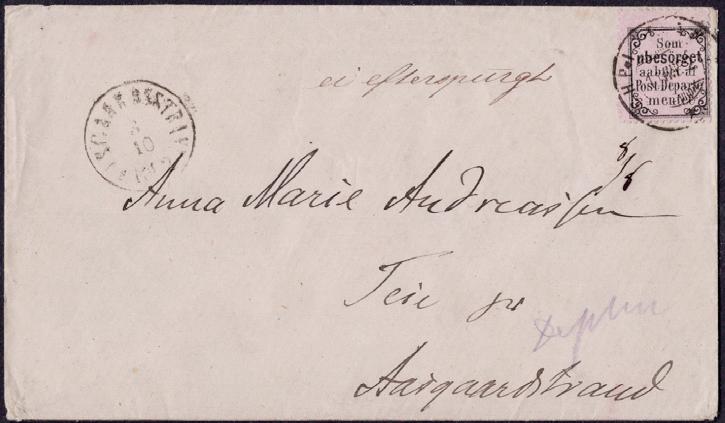 Som
ubesørget
aabnet af
Post-Departe-
mentet
ei efterspurgt
5
10
Anna Marie Andreassen
8/8
Teie pr
Aasgaardstrand